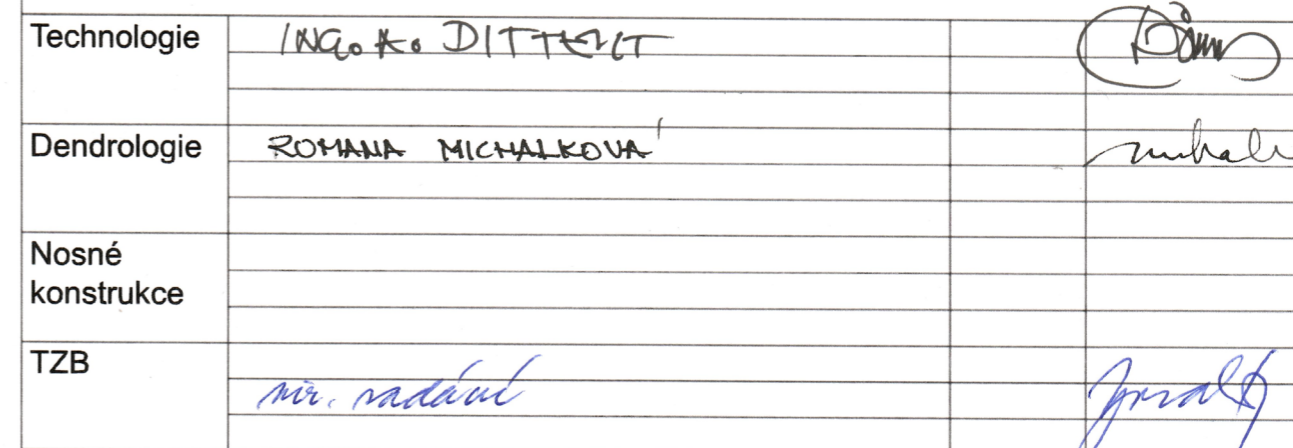 Technologie
ING. K. DITTERT
Dendrologie
ROMANA MICHALKOVÁ
Nosné
konstrukce
TZB